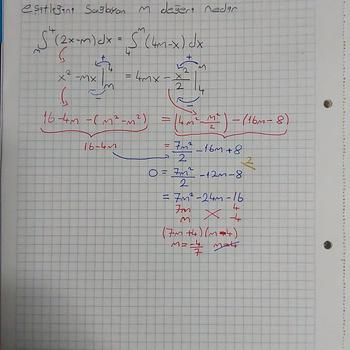 eşitliğini sağlayan m değeri nedir
∫_m^4 (2x-m)dx = ∫_4^m (4m-x)dx
x² - mx |_m^4 = 4mx - x²/2 |_4^m
+ - + -
16-4m-(m²-m²) = (4m² - m²/2) - (16m-8)
16-4m = 7m²/2 - 16m + 8
0 = 7m²/2 - 12m - 8
2
= 7m² - 24m - 16
7m 4
m -4
(7m+4)(m-4)
m = -4/7 m=4